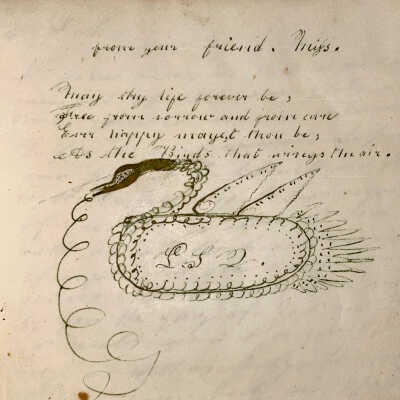 from your friend. Miss.
May thy life forever be;
Free from sorrow and from care
Ever happy mayest thou be;
As the Birds that wings the air.
L. S. D.